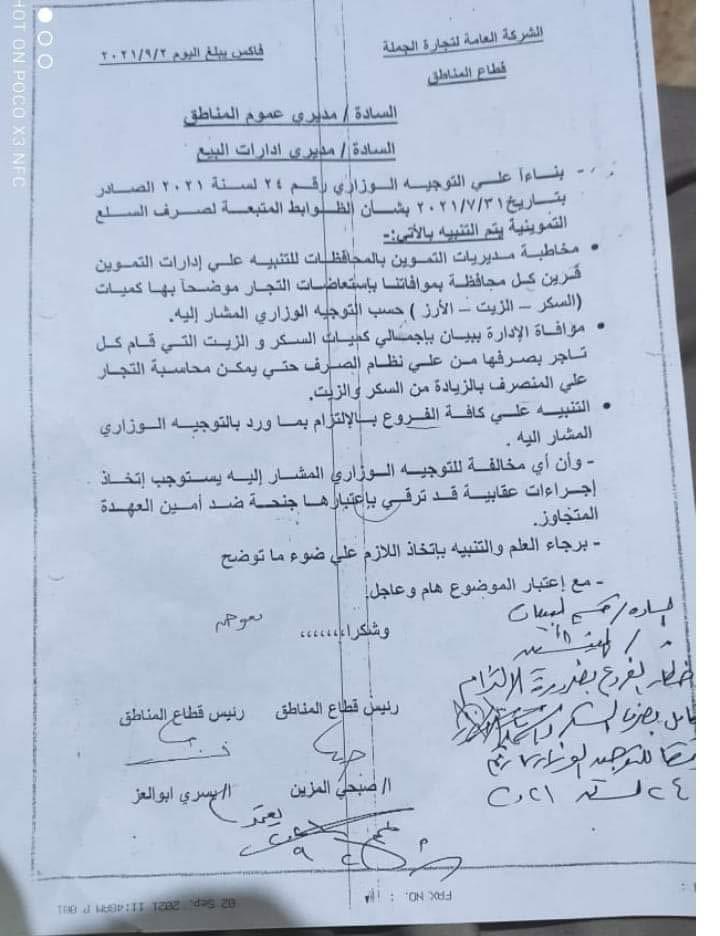 الشركة العامة لتجارة الجملة
قطاع المناطق
فاكس يبلغ اليوم ٢٠٢١/٩/٢
السادة / مديري عموم المناطق
السادة / مديري ادارات البيع
- بناءاً علي التوجيه الوزاري رقم ٢٤ لسنة ٢٠٢١ الصادر
بتاريخ ٢٠٢١/٧/٣١ بشان الظوابط المتبعة لصرف السلع
التموينية يتم التنبيه بالأتي:-
• مخاطبة مديريات التموين بالمحافظات للتنبيه علي إدارات التموين
قرين كل محافظة بموافاتنا بإستعاضات التجار موضحاً بها كميات
(السكر – الزيت – الأرز ) حسب التوجيه الوزاري المشار إليه.
• موافاة الإدارة ببيان بإجمالي كميات السكر و الزيت التي قام كل
تاجر بصرفها من علي نظام الصرف حتي يمكن محاسبة التجار
علي المنصرف بالزيادة من السكر والزيت.
• التنبيه علي كافة الفروع بالإلتزام بما ورد بالتوجيه الوزاري
المشار اليه .
- وأن أي مخالفة للتوجيه الوزاري المشار إليه يستوجب إتخاذ
إجراءات عقابية قد ترقي بإعتبارها جنحة ضد أمين العهدة
المتجاوز.
- برجاء العلم والتنبيه بإتخاذ اللازم علي ضوء ما توضح
- مع إعتبار الموضوع هام وعاجل.
وشكرا،،،،،،،
السادة /
الفروع بضرورة الالتزام
بصرف السكر
للتوجيه الوزاري رقم
٢٤ لسنة ٢٠٢١
رئيس قطاع المناطق
رئيس قطاع المناطق
ا/ صبحي المزين
ا/ يسري ابوالعز
يعتمد
FAX NO. :
02 Sep. 2021 11:48AM P 001
SHOT ON POCO X3 NFC